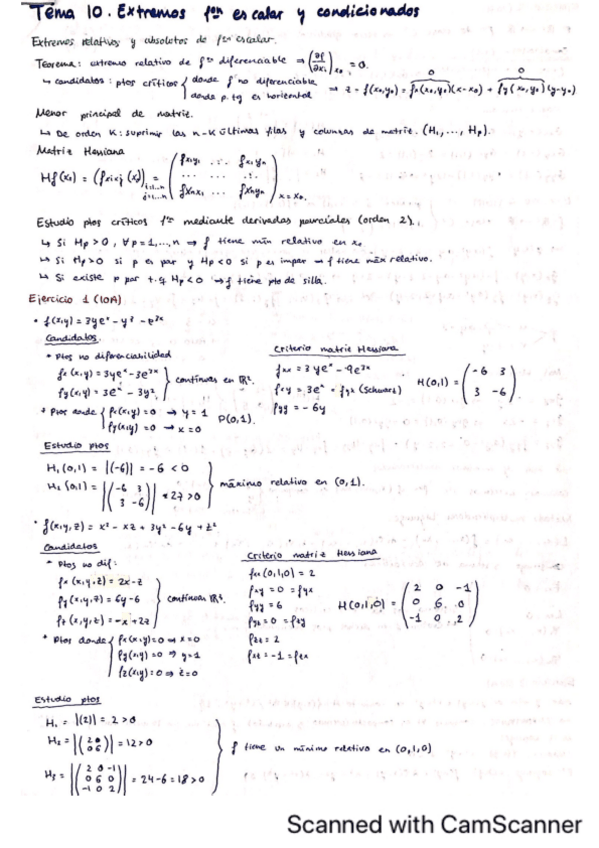 Tema 10. Extremos fᶜⁿ escalar y condicionados
Extremos relativos y absolutos de fᶜⁿ escalar.
Teorema: extremo relativo de fᶜⁿ diferenciable ⇒ (∂f/∂xᵢ)ₓ₀ = 0.
↳ candidatos: ptos críticos { donde f no diferenciable
donde p. tg es horizontal ⇒ z - f(x₀,y₀) = fx(x₀,y₀)(x-x₀) + fy(x₀,y₀)(y-y₀)
0 0
Menor principal de matriz.
↳ De orden K: suprimir las n-K últimas filas y columnas de matriz. (H₁, ..., Hp).
Matriz Hessiana
Hf(x₀) = (fxixj (x))i=1,...n j=1,...n = (fx₁y₁ ... fx₁yn
... ... ...
fxnx₁ ... fxnyn) x=x₀
Estudio ptos críticos fᶜⁿ mediante derivadas parciales (orden 2).
↳ Si Hp > 0, ∀p=1,...,n ⇒ f tiene mín relativo en x₀
↳ Si Hp > 0 si p es par y Hp < 0 si p es impar → f tiene máx relativo.
↳ Si existe p par t.q Hp < 0 → f tiene pto de silla.
Ejercicio 1 (10A)
• f(x,y) = 3yeˣ - y³ - e³ˣ
Candidatos.
• Ptos no diferenciabilidad
fx (x,y) = 3yeˣ - 3e³ˣ
fy(x,y) = 3eˣ - 3y² } continuas en R².
• Ptos donde { fx(x,y) = 0 → y = 1
fy(x,y) = 0 → x = 0 P(0,1).
Criterio matriz Hessiana
fxx = 3yeˣ - 9e³ˣ
fxy = 3eˣ = fyx (Schwarz)
fyy = -6y
H(0,1) = (-6 3
3 -6)
Estudio ptos
H₁(0,1) = |(-6)| = -6 < 0
H₂(0,1) = |(-6 3
3 -6)| = 27 > 0 } máximo relativo en (0,1).
• f(x,y,z) = x² - xz + 3y² - 6y + z²
Candidatos
• Ptos no dif:
fx (x,y,z) = 2x-z
fy (x,y,z) = 6y-6
fz (x,y,z) = -x+2z } continuas R³.
• Ptos donde { fx(x,y) = 0 → x=0
fy(x,y) = 0 → y=1
fz(x,y) = 0 ⇒ z=0
Criterio matriz Hessiana
fxx (0,1,0) = 2
fxy = 0 = fyx
fyy = 6
fyz = 0 = fzy
fzz = 2
fxz = -1 = fzx
H(0,1,0) = (2 0 -1
0 6 0
-1 0 2)
Estudio ptos
H₁ = |(2)| = 2 > 0
H₂ = |(2 0
0 6)| = 12 > 0
H₃ = |(2 0 -1
0 6 0
-1 0 2)| = 24-6 = 18 > 0
} f tiene un mínimo relativo en (0,1,0)
Scanned with CamScanner